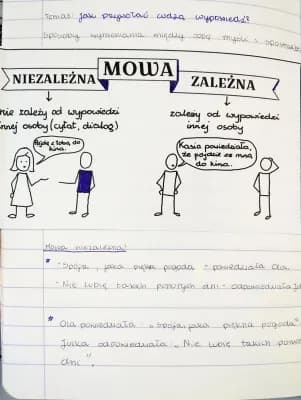 Temat: Jak przywołać cudzą wypowiedź?
Sposoby wymieniania między sobą myśli i spostrze
MOWA
NIEZALEŻNA
ZALEŻNA
nie zależy od wypowiedzi
innej osoby (cytat, dialog)
zależy od wypowiedzi
innej osoby
Pójdę z tobą do
kina.
Kasia powiedziała,
że pójdzie ze mną
do kina.
Mowa niezależna:
* -Spójrz, jaka piękna pogoda - powiedziała Ola.
-Nie lubię takich ponurych dni - odpowiedziała Ju
* Ola powiedziała: „Spójrz, jaka piękna pogoda"
Julka odpowiedziała „Nie lubię takich ponu
dni".